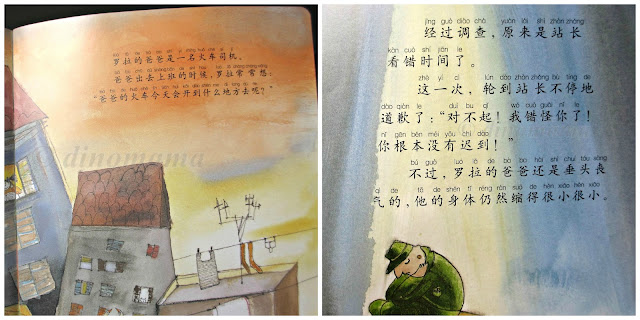 罗拉的爸爸是一名火车司机。
爸爸出去上班的时候，罗拉常常想：
“爸爸的火车今天会开到什么地方去呢？”
dinomama
jīng guò diào chá yuán lái shì zhàn zhǎng
经过调查，原来是站长
kàn cuò shí jiān le
看错时间了。
zhè yí cì lún dào zhàn zhǎng bù tíng de
这一次，轮到站长不停地
dào qiàn le duì bu qǐ wǒ cuò guài nǐ le
道歉了：“对不起！我错怪你了！
nǐ gēn běn méi yǒu chí dào
你根本没有迟到！”
bú guò luó lā de bà ba hái shì chuí tóu sàng
不过，罗拉的爸爸还是垂头丧
qì de tā de shēn tǐ réng rán suō de hěn xiǎo hěn xiǎo
气的，他的身体仍然缩得很小很小。